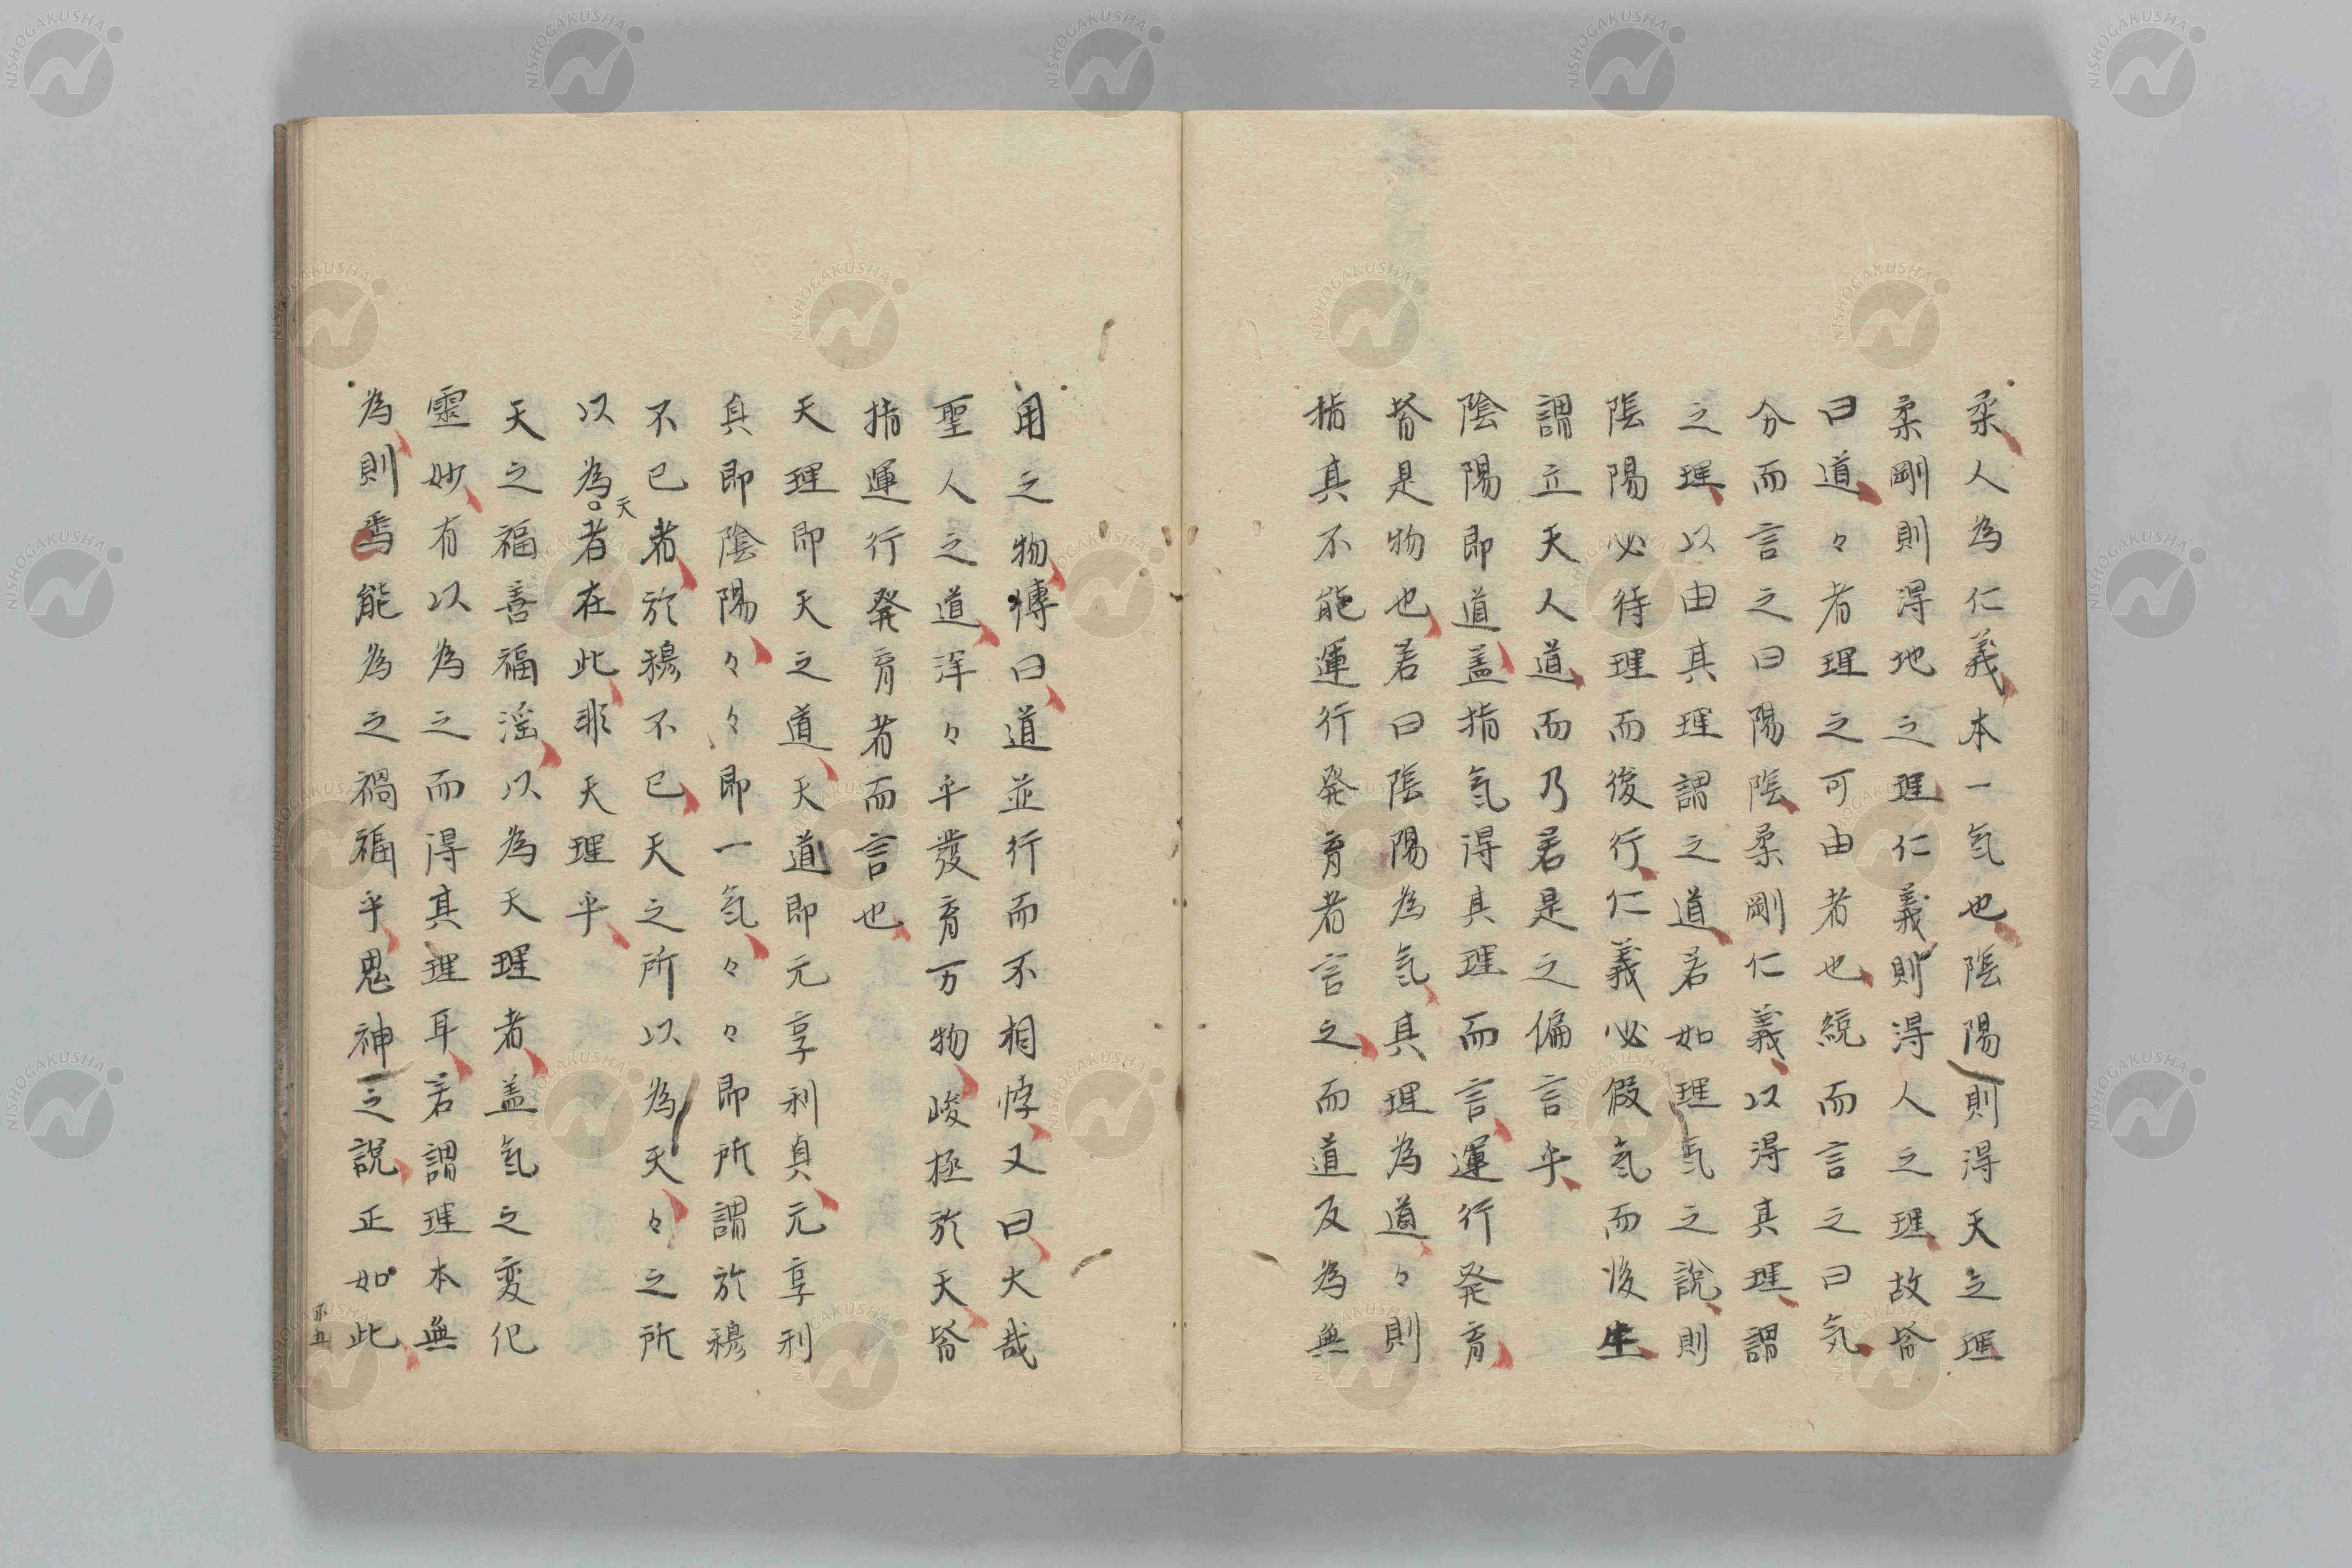 柔人為仁義本一気也陰陽則得天之理
柔剛則得地之理仁義則得人之理故皆
曰道々者理之可由者也統而言之曰気
分而言之曰陽陰柔剛仁義以得其理謂
之理以由其理謂之道若如理気之説則
陰陽必待理而後行仁義必假気而後生
謂立天人道而乃若是之偏言乎
陰陽即道盖指気得其理而言運行発育
皆是物也若曰陰陽為気其理為道々則
指其不能運行発育者言之而道反為無
用之物傳曰道並行而不相悖又曰大哉
聖人之道洋々乎發育万物峻極於天皆
指運行発育者而言也
天理即天之道天道即元享利真元享利
真即陰陽々々即一気々々即所謂於穆
不已者於穆不已天之所以為天々之所
以為天者在此非天理乎
天之福善福淫以為天理者盖気之変化
霊妙有以為之而得其理耳若謂理本無
為則焉能為之禍福乎鬼神之説正如此
NISHOGAKUSHA